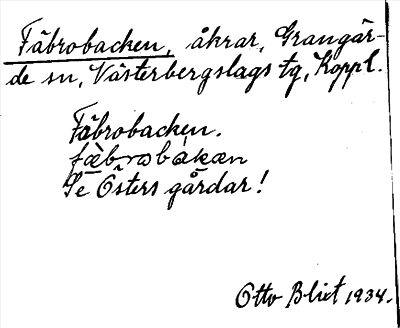 Fäbrobacken, åkrar, Grangär-
de sn, Västerbergslags tg, Koppl.
Fäbrobacken.
fæ̀brobàkæn
Se Östers gårdar!
Otto Blixt 1934.